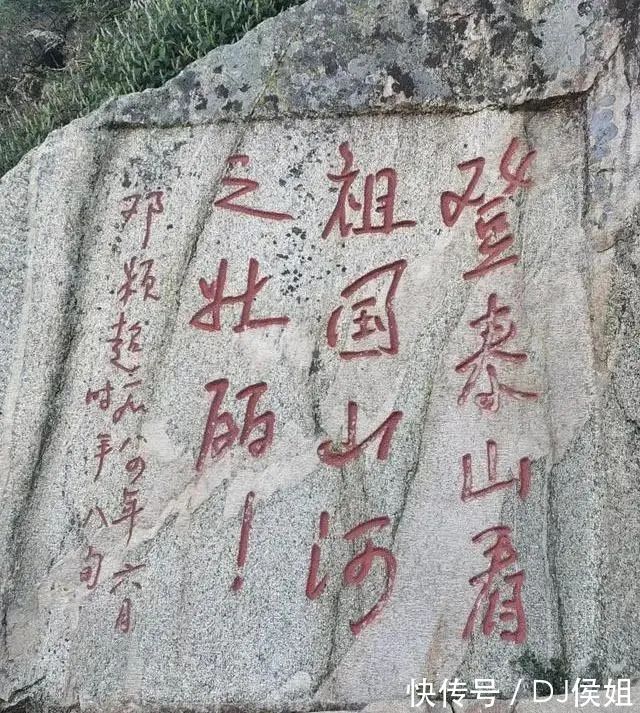 登泰山看
祖国山河
之壮丽！
邓颖超一九八四年六月
时年八旬
快传号 / DJ侯姐